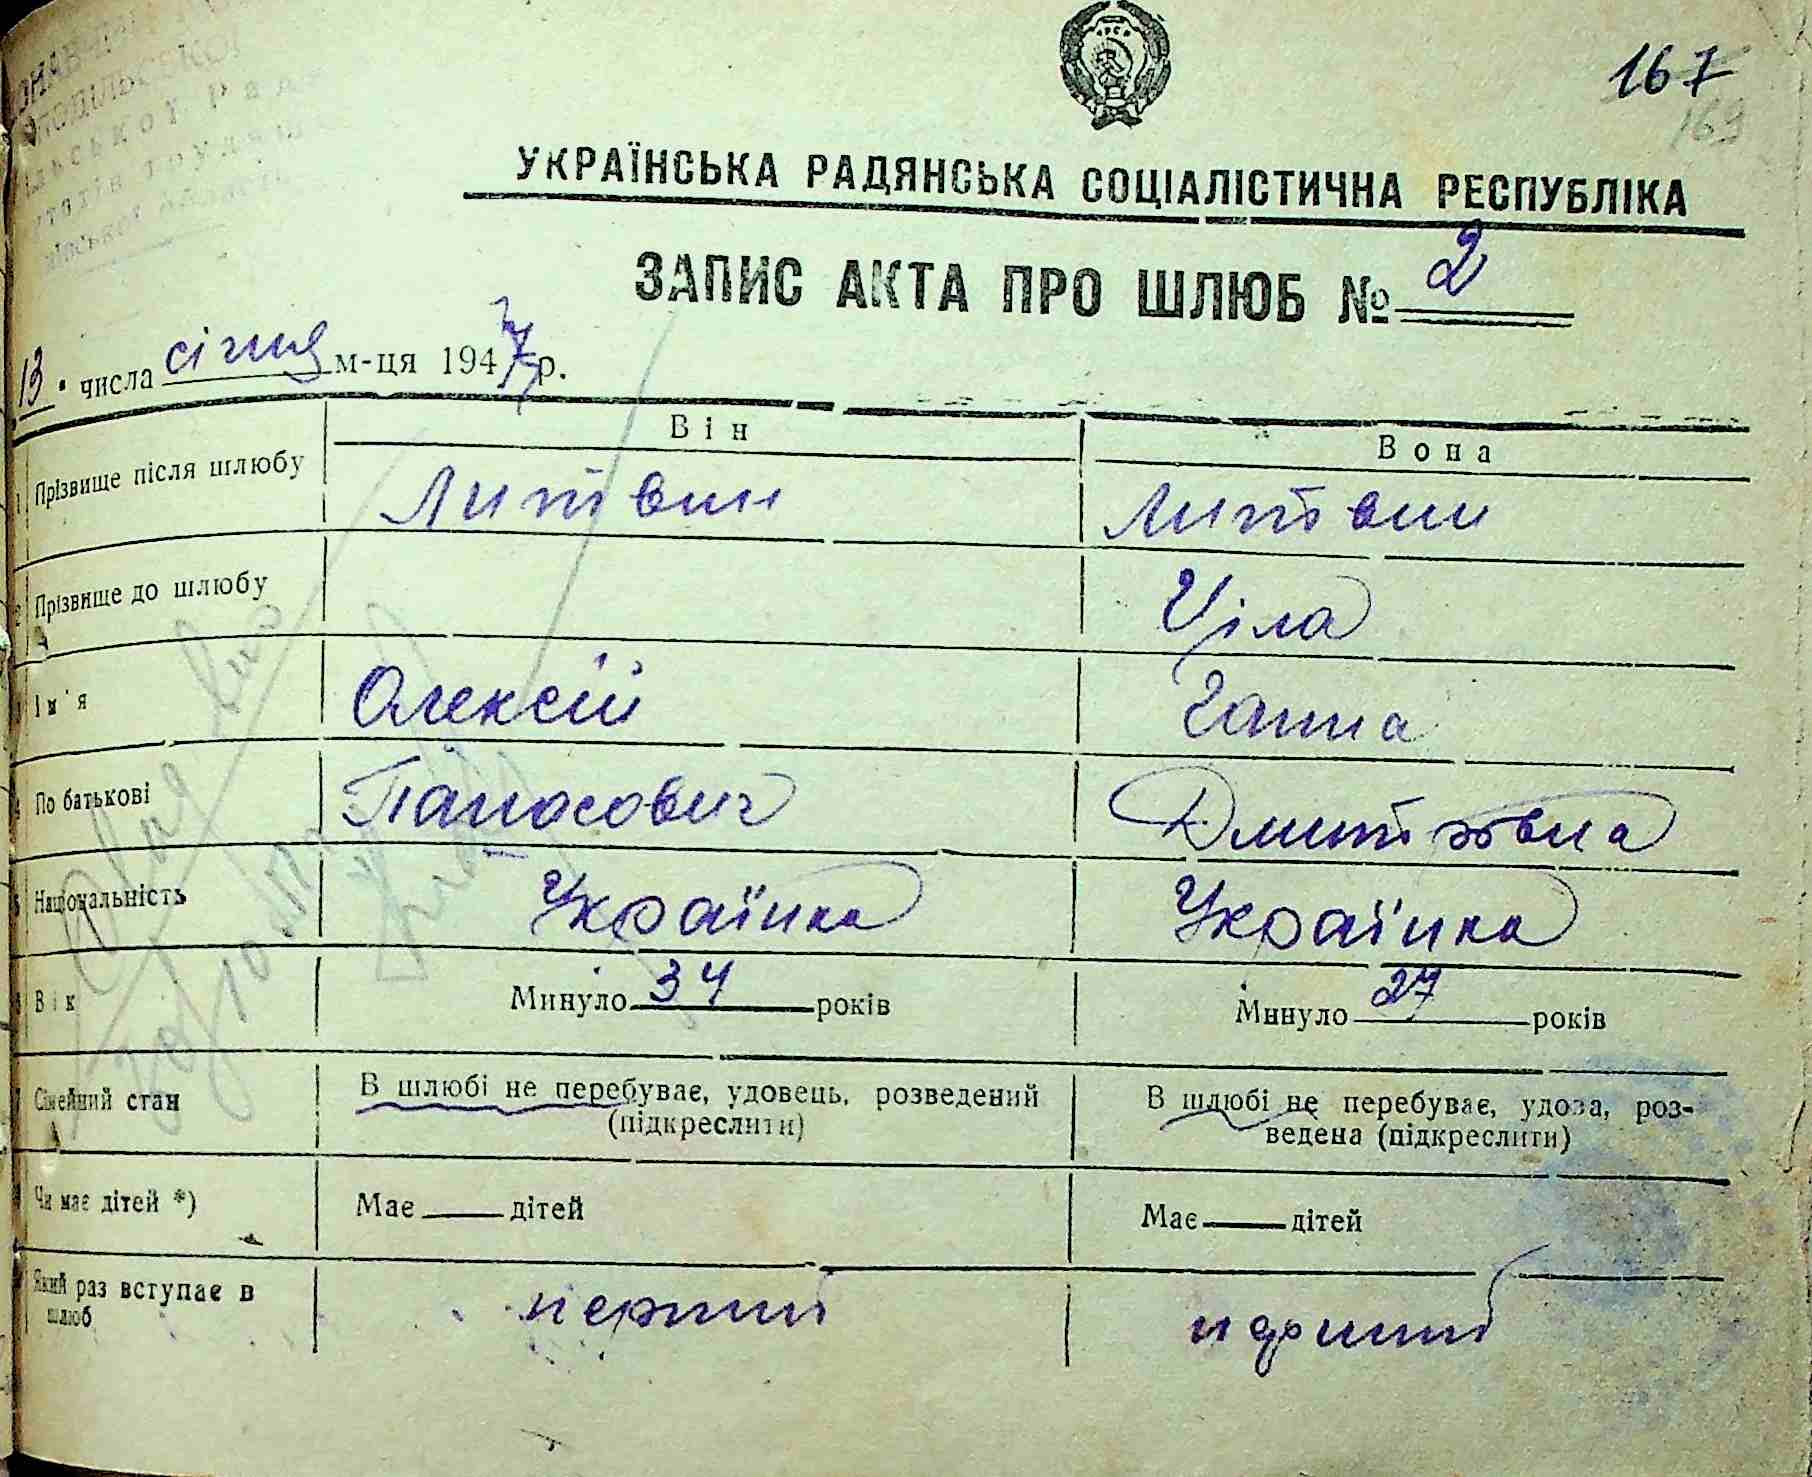 167
169
УКРАЇНСЬКА РАДЯНСЬКА СОЦІАЛІСТИЧНА РЕСПУБЛІКА
ЗАПИС АКТА ПРО ШЛЮБ № 2
13 числа січня м-ця 1947 р.
Він Вона
Прізвище після шлюбу Литвин Литвин
Прізвище до шлюбу Ціла
Ім'я Олексій Ганна
По батькові Панасович Дмитровна
Національність Українка Українка
Вік Минуло 34 років Минуло 27 років
Сімейний стан В шлюбі не перебуває, удовець, розведений В шлюбі не перебуває, удова, роз-
(підкреслити) ведена (підкреслити)
Чи має дітей *) Має дітей Має дітей
Який раз вступає в
шлюб